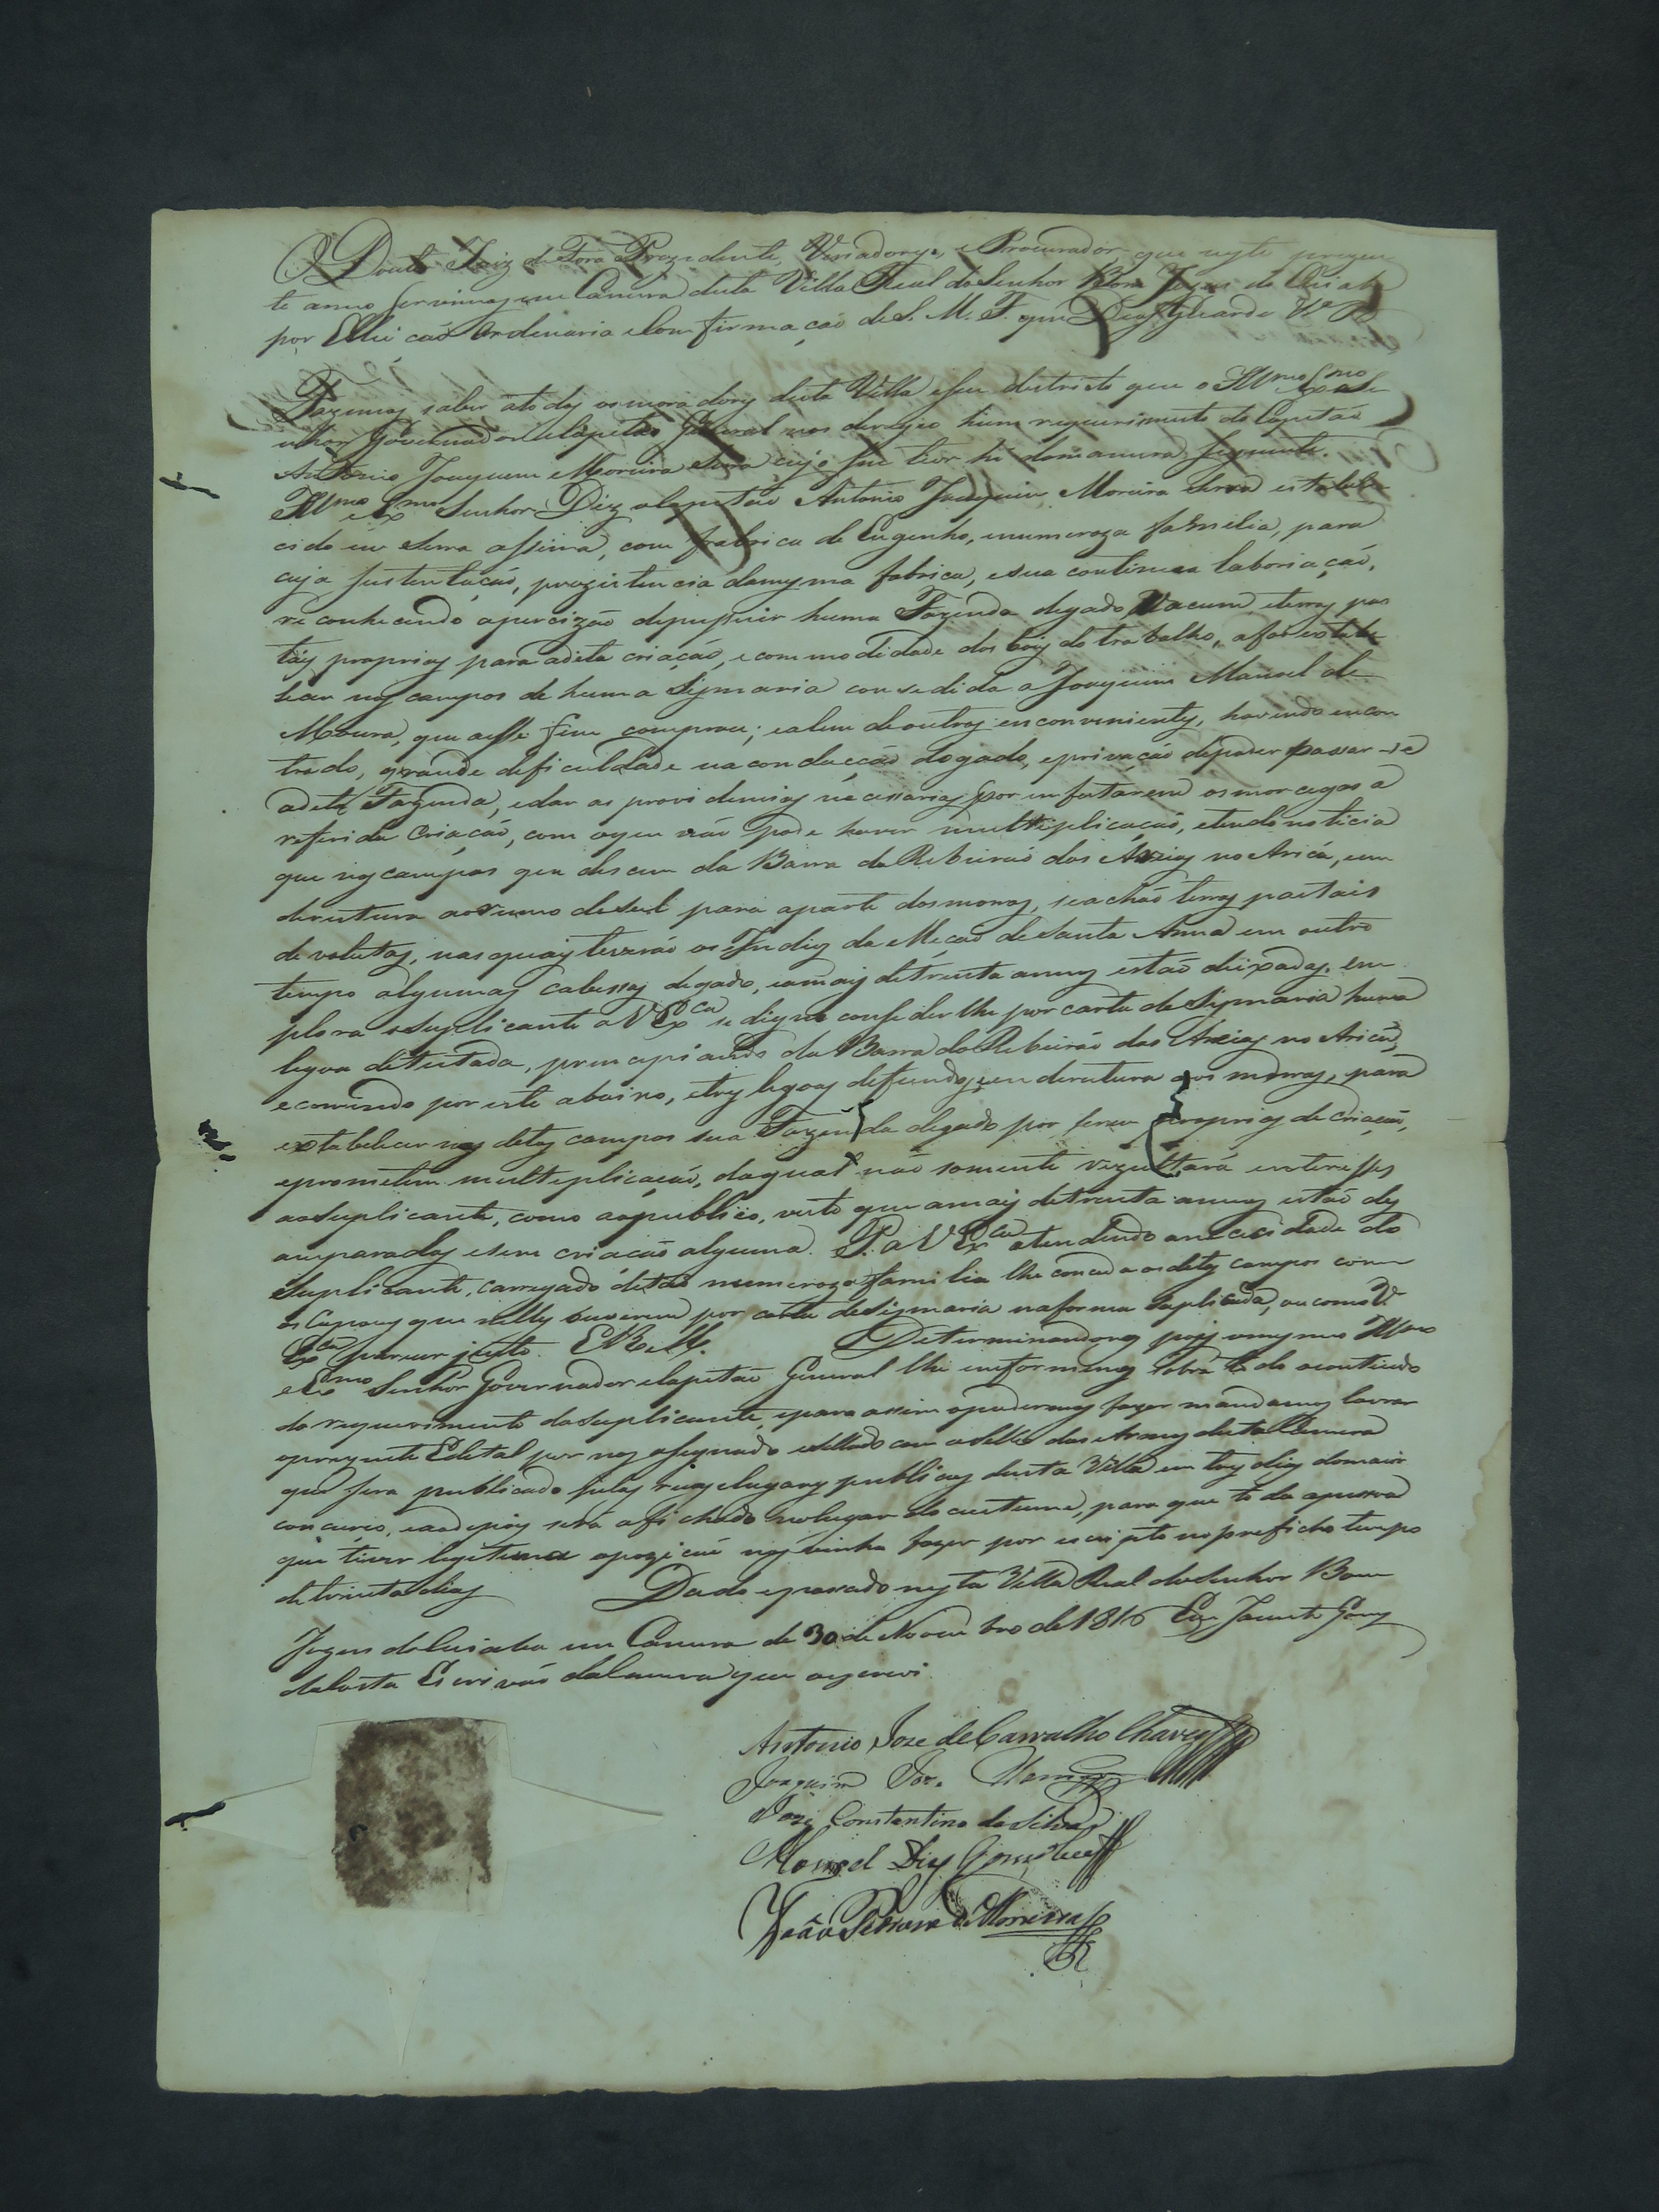 O Doutor Juiz de Fora Prezidente, Veriadores, e Procurador que neste prezen
te anno servimos em Camera desta Villa Real do Senhor Bom Jezus do Cuiabá
por Ellei caõ ordenaria e Comfirmaçaõ de S. M. F. que Deos Guarde Vª
Fazemos saber atodos os mora dores desta Villa eseu destricto que o Illmo Exmo Se
nhor Governador eCapitaõ General nos deregeo hum requerimento do Capitaõ
Antonio Joaquim Moreira Serra cujo seu teor he damaneira seguinte.
Illmo e Exmo Senhor Diz oCapitaõ Antonio Joaquim Moreira Serra estabele
cido em Serra assima, com fabrica de Engenho, enumeroza familia, para
cuja sustentaçaõ, prezistencia damesma fabrica, esua continua laboriaçaõ,
re conhecendo aprecizaõ depussuir huma Fazenda degado Vacum, eterras pas
tais proprias para adita criaçaõ, ecommodidade dos bois do trabalho, afoi estabe
lecer nos campos de huma Sismaria consedida a Joaquim Manoel de
Moura, que aesse fim comprou; ealem de outros enconvenientes, havendo encon
trado, grande deficuldade na conducçaõ dogado, eprivaçaõ depoder passar-se
adita Fazenda, edar as provi dencias necessarias por enfestarem os morcegos a
referida Criaçaõ, com oque naõ pode haver multeplicaçaõ, etendo noticia
que nos campos que descem da Barra do Ribeiraõ das Areias no Aricá, em
dereitura aorumo desul para aparte dosmorros, seachaõ terras pastais
devolutas, nas quais tiveraõ os Indios da Meçaõ de Santa Anna em outro
tempo algumas cabessas degado, eamais detrinta annos estaõ deixadas, em
plora oSuplicante a V Exca se digne conseder lhe por carta de Sismaria huma
legoa detestada, prencipiando da Barra do Ribeiraõ das Areias no Aricá,
ecorrendo por este abaixo, etres legoas defundos, em dereitura aos morros, para
estabelecer nos ditos campos sua Fazenda degado por serem proprios de criaçaõ,
eprometem multeplicaçaõ, daqual naõ somente rezultará enteresses
aoSuplicante, como aopublico, visto que amais detrinta annos estaõ des
amparados esem criaçaõ alguma. P. a V Exca atendendo anecessidade do
Suplicante, carregado detaõ numeroza familia lhe conceda os ditos campos com
os Capoens que nelles ouverem por carta deSismaria naforma Suplicada, ou como V.
Exca parecer justo. E R. M. Determinandonos pois omesmo Illmo
e Exmo Senhor Governador eCapitaõ General lhe enformemos sobre to do ocontiudo
do requerimento doSuplicante, epara assim opudermos fazer mandamos lavrar
oprezente Edital por nos asignado esellado com oSello das Armas desta Camera
que sera publicado pelas ruas elugares publicos desta Villa em tres dias domaior
concurço, eaodepois será afichado nolugar do custume, para que to da apessoa
que tiver legitima opoziçaõ nos venha fazer por escripto noprefichо tempo
detrinta dias Dado epassado nesta Villa Real doSenhor Bom
Jezus doCuiaba em Camera de 30 de Novembro de 1816 Eu Jacinto Gomes
daCosta Escrivaõ daCamera que oescrevi
Antonio Joze de Carvalho Chaves
Joaquim Joze
Joze Constantino da Silva
Manoel Dias
João Pereira